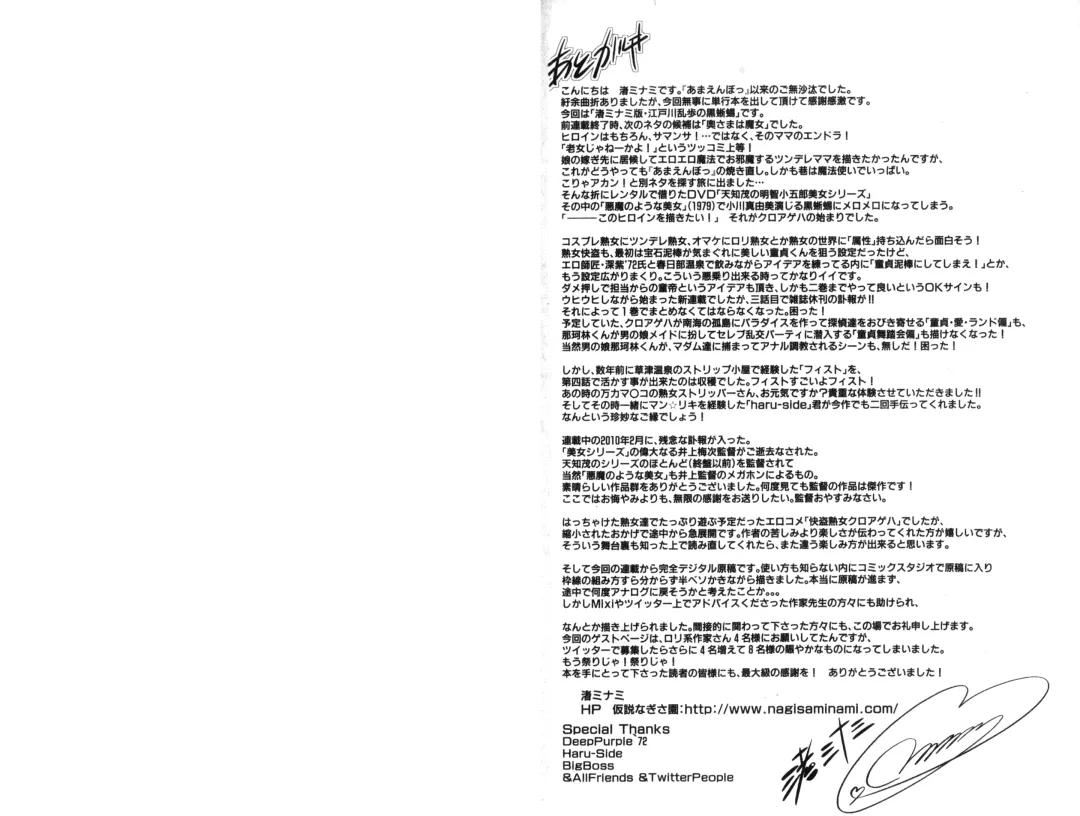 あとがき
こんにちは　渚ミナミです。『あまえんぼっ』以来のご無沙汰でした。
紆余曲折ありましたが、今回無事に単行本を出して頂けて感謝感激です。
今回は「渚ミナミ版・江戸川乱歩の黒蜥蜴」です。
前連載終了時、次のネタの候補は「奥さまは魔女」でした。
ヒロインはもちろん、サマンサ！…ではなく、そのママのエンドラ！
「老女じゃねーかよ！」というツッコミ上等！
娘の嫁ぎ先に居候してエロエロ魔法でお邪魔するツンデレママを描きたかったんですが、
これがどうやっても『あまえんぼっ』の焼き直し。しかも巷は魔法使いでいっぱい。
こりゃアカン！と別ネタを探す旅に出ました…
そんな折にレンタルで借りたDVD「天知茂の明智小五郎美女シリーズ」
その中の「悪魔のような美女」(1979)で小川真由美演じる黒蜥蜴にメロメロになってしまう。
「―――このヒロインを描きたい！」　それがクロアゲハの始まりでした。
コスプレ熟女にツンデレ熟女、オマケにロリ熟女とか熟女の世界に「属性」持ち込んだら面白そう！
熟女快盗も、最初は宝石泥棒が気まぐれに美しい童貞くんを狙う設定だったけど、
エロ師匠・深紫'72氏と春日部温泉で飲みながらアイデアを練ってる内に「童貞泥棒にしてしまえ！」とか、
もう設定広がりまくり。こういう悪乗り出来る時ってかなりイイです。
ダメ押しで担当からの童帝というアイデアも頂き、しかも二巻までやって良いというOKサインも！
ウヒウヒしながら始まった新連載でしたが、三話目で雑誌休刊の訃報が!!
それによって１巻でまとめなくてはならなくなった。困った！
予定していた、クロアゲハが南海の孤島にパラダイスを作って探偵達をおびき寄せる「童貞・愛・ランド編」も、
那珂林くんが男の娘メイドに扮してセレブ乱交パーティに潜入する「童貞舞踏会編」も描けなくなった！
当然男の娘那珂林くんが、マダム達に捕まってアナル調教されるシーンも、無しだ！困った！
しかし、数年前に草津温泉のストリップ小屋で経験した「フィスト」を、
第四話で活かす事が出来たのは収穫でした。フィストすごいよフィスト！
あの時の万カマ〇コの熟女ストリッパーさん、お元気ですか？貴重な体験させていただきました!!
そしてその時一緒にマン☆リキを経験した「haru-side」君が今作でも二回手伝ってくれました。
なんという珍妙なご縁でしょう！
連載中の2010年2月に、残念な訃報が入った。
「美女シリーズ」の偉大なる井上梅次監督がご逝去なされた。
天知茂のシリーズのほとんど(終盤以前)を監督されて
当然「悪魔のような美女」も井上監督のメガホンによるもの。
素晴らしい作品群をありがとうございました。何度見ても監督の作品は傑作です！
ここではお悔やみよりも、無限の感謝をお送りしたい。監督おやすみなさい。
はっちゃけた熟女達でたっぷり遊ぶ予定だったエロコメ「快盗熟女クロアゲハ」でしたが、
縮小されたおかげで途中から急展開です。作者の苦しみより楽しさが伝わってくれた方が嬉しいですが、
そういう舞台裏も知った上で読み直してくれたら、また違う楽しみ方が出来ると思います。
そして今回の連載から完全デジタル原稿です。使い方も知らない内にコミックスタジオで原稿に入り
枠線の組み方すら分からず半ベソかきながら描きました。本当に原稿が進まず、
途中で何度アナログに戻そうかと考えたことか。。。
しかしMixiやツイッター上でアドバイスくださった作家先生の方々にも助けられ、
なんとか描き上げられました。間接的に関わって下さった方々にも、この場でお礼申し上げます。
今回のゲストページは、ロリ系作家さん４名様にお願いしてたんですが、
ツイッターで募集したらさらに４名増えて８名様の賑やかなものになってしまいました。
もう祭りじゃ！祭りじゃ！
本を手にとって下さった読者の皆様にも、最大級の感謝を！　ありがとうございました！
渚ミナミ
HP　仮説なぎさ園:http://www.nagisaminami.com/
Special Thanks
DeepPurple '72
Haru-Side
BigBoss
&AllFriends &TwitterPeople
渚ミナミ